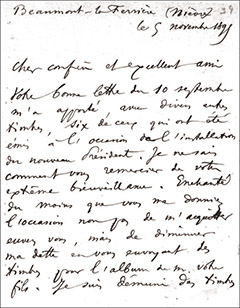 Beaumont-la-Ferrière (Nièvre) 39
le 5 novembre 189
Cher confrère et excellent ami
Votre bonne lettre du 10 septembre
m'a apporté avec divers autres
timbres, six de ceux qui ont été
émis à l'occasion de l'installation
du nouveau Président. Je ne sais
comment vous remercier de votre
extrême bienveillance. Enchanté
du moins que vous me donniez
l'occasion non pas de m'acquitter
envers vous, mais de diminuer
ma dette en vous envoyant des
timbres pour l'album de votre
fils. Je suis des timbres